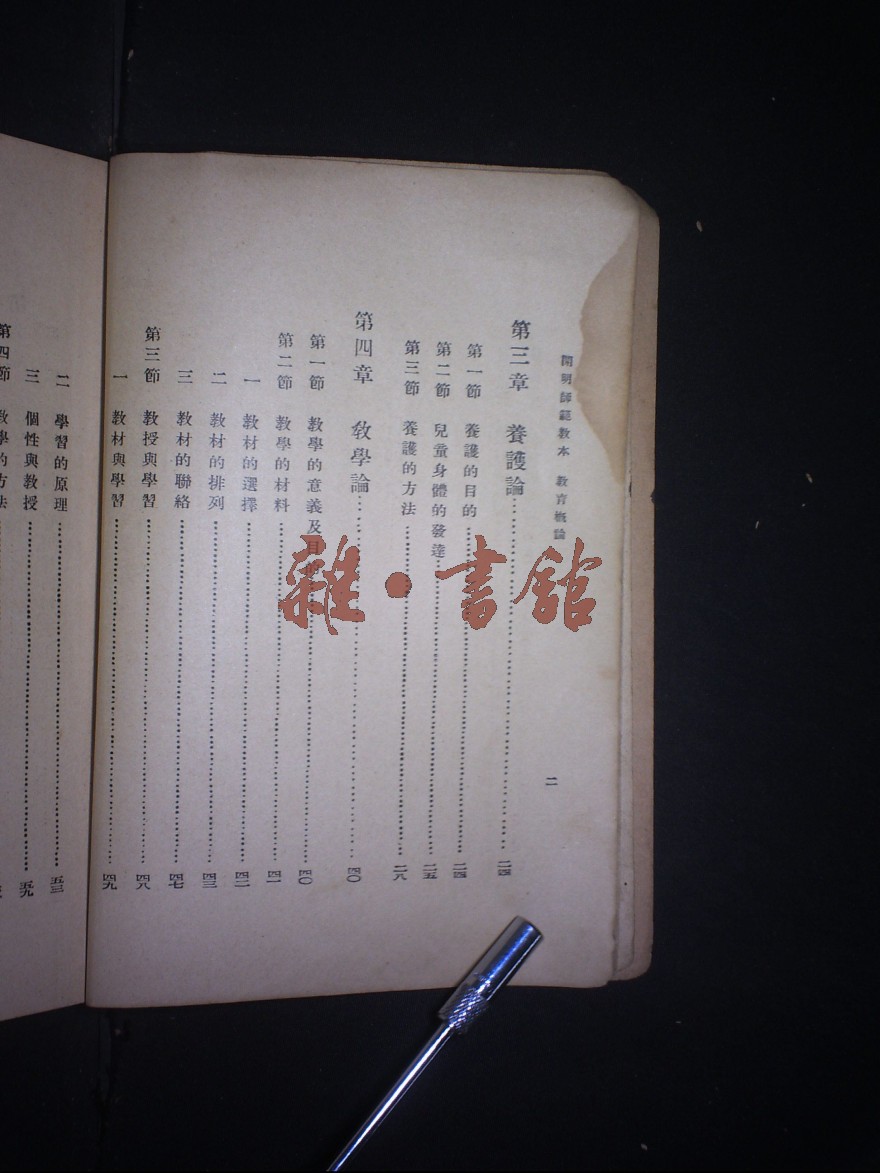 開明師範教本 教育概論
二
第三章 養護論……二四
第一節 養護的目的……二四
第二節 兒童身體的發達……二五
第三節 養護的方法……二八
第四章 教學論……四〇
第一節 教學的意義及目的……四〇
第二節 教學的材料……四一
一 教材的選擇……四二
二 教材的排列……四三
三 教材的聯絡……四七
第三節 教授與學習……四八
一 教材與學習……四九
二 學習的原理……五三
三 個性與教授……五九
第四節 教學的方法
雜·書館